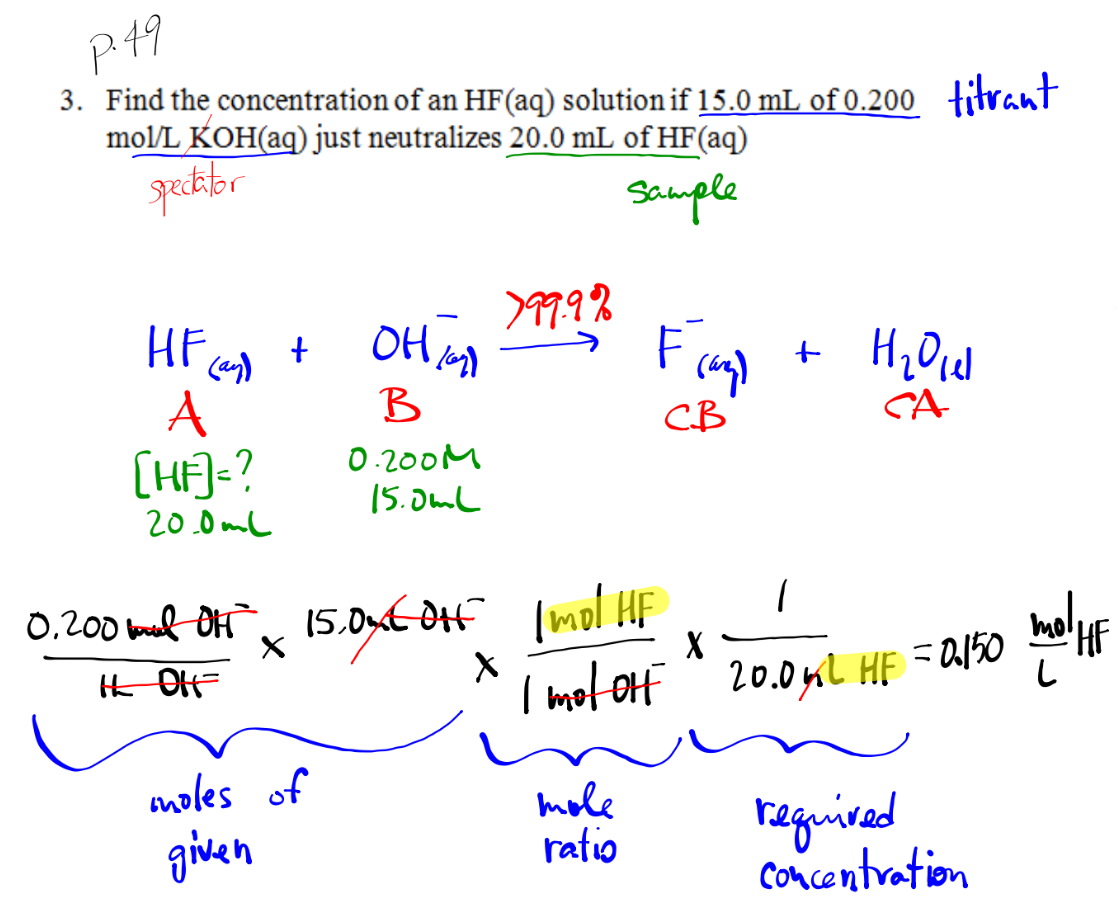 p.49
3. Find the concentration of an HF(aq) solution if 15.0 mL of 0.200 titrant
mol/L KOH(aq) just neutralizes 20.0 mL of HF(aq)
spectator sample
>99.9%
HF(aq) + OH⁻(aq) → F⁻(aq) + H₂O(l)
A B CB CA
[HF]=? 0.200M
20.0mL 15.0mL
0.200 mol OH⁻ / 1L OH⁻ × 15.0mL OH⁻ × 1 mol HF / 1 mol OH⁻ × 1 / 20.0 mL HF = 0.150 mol/L HF
moles of given
mole ratio
required concentration